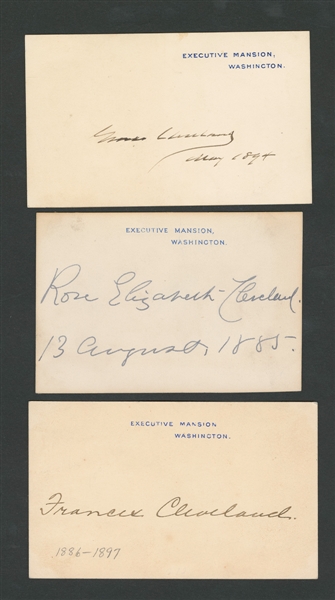 EXECUTIVE MANSION,
WASHINGTON.
Grover Cleveland
May 1894
EXECUTIVE MANSION,
WASHINGTON.
Rose Elizabeth Cleveland.
13 August, 1885.
EXECUTIVE MANSION
WASHINGTON.
Frances Cleveland.
1886-1897